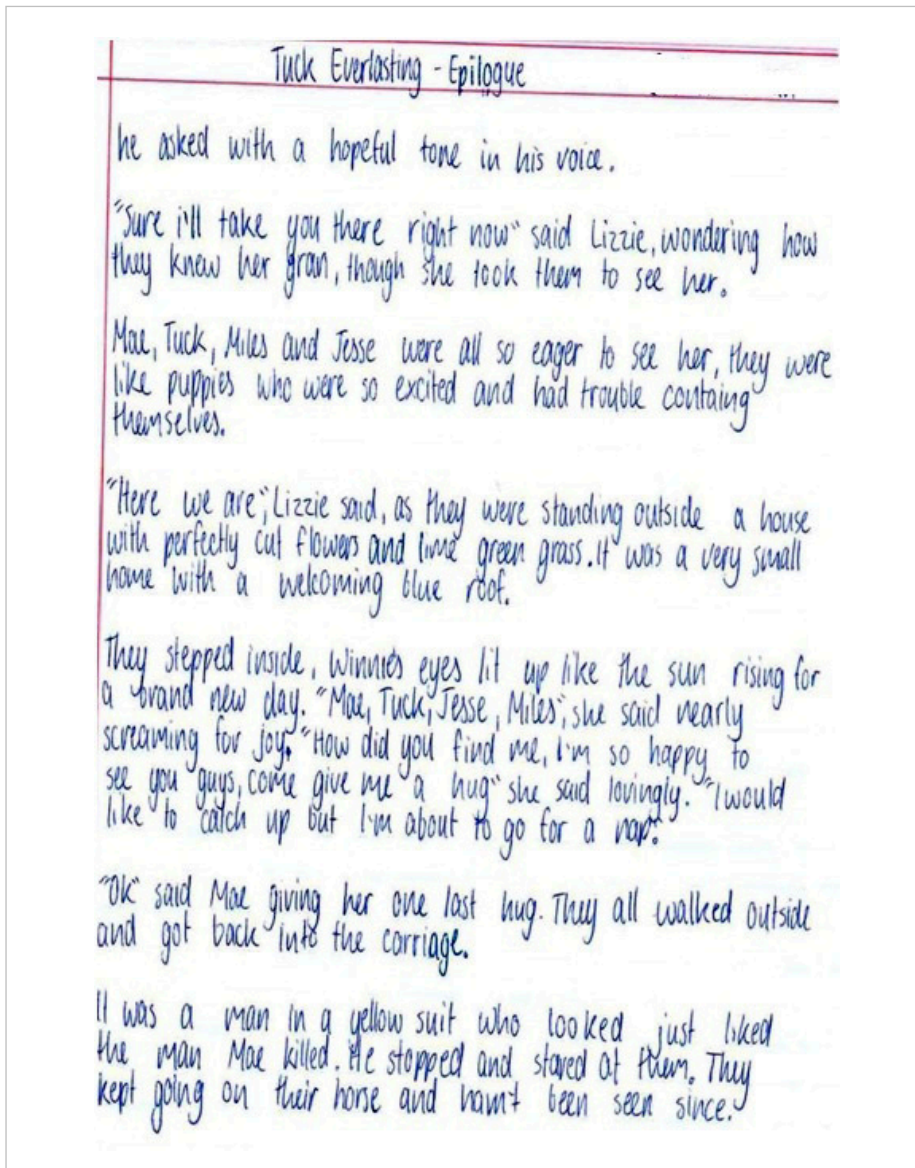 Tuck Everlasting - Epilogue
he asked with a hopeful tone in his voice.
"Sure i'll take you there right now" said Lizzie, wondering how
they knew her gran, though she took them to see her.
Mae, Tuck, Miles and Jesse were all so eager to see her, they were
like puppies who were so excited and had trouble containg
themselves.
"Here we are", Lizzie said, as they were standing outside a house
with perfectly cut flowers and lime green grass. It was a very small
home with a welcoming blue roof.
They stepped inside, Winnie's eyes lit up like the sun rising for
a brand new day. "Mae, Tuck, Jesse, Miles", she said nearly
screaming for joy. "How did you find me, I'm so happy to
see you guys, come give me a hug" she said lovingly. "I would
like to catch up but I'm about to go for a nap."
"Ok" said Mae giving her one last hug. They all walked outside
and got back into the carriage.
It was a man in a yellow suit who looked just liked
the man Mae killed. He stopped and stared at them. They
kept going on their horse and havn't been seen since.